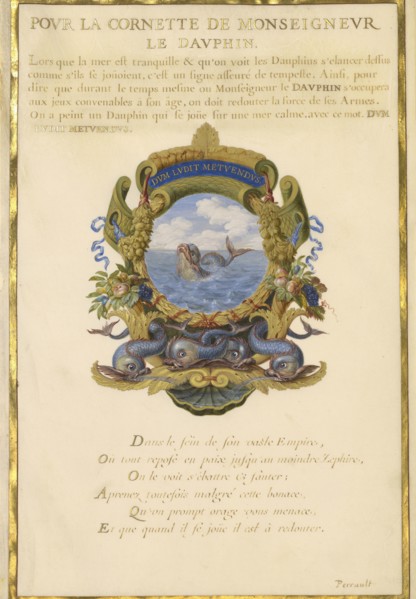 POVR LA CORNETTE DE MONSEIGNEVR
LE DAVPHIN.
Lors que la mer est tranquille & qu'on voit les Dauphins s'elancer dessus
comme s'ils se joüoient, c'est un signe asseuré de tempeste. Ainsi, pour
dire que durant le temps mesme ou Monseigneur le DAVPHIN s'occupera
aux jeux convenables à son âge, on doit redouter la force de ses Armes.
On a peint un Dauphin qui se joüe sur une mer calme, avec ce mot. DVM
LVDIT METVENDVS.
DVM LVDIT METVENDVS
Dans le sein de son vaste Empire,
Où tout repose en paix jusqu'au moindre Zephire,
On le voit s'ébattre & sauter;
Aprenez toutefois malgré cette bonace,
Qu'un prompt orage vous menace,
Et que quand il se joüe il est à redouter.
Perrault